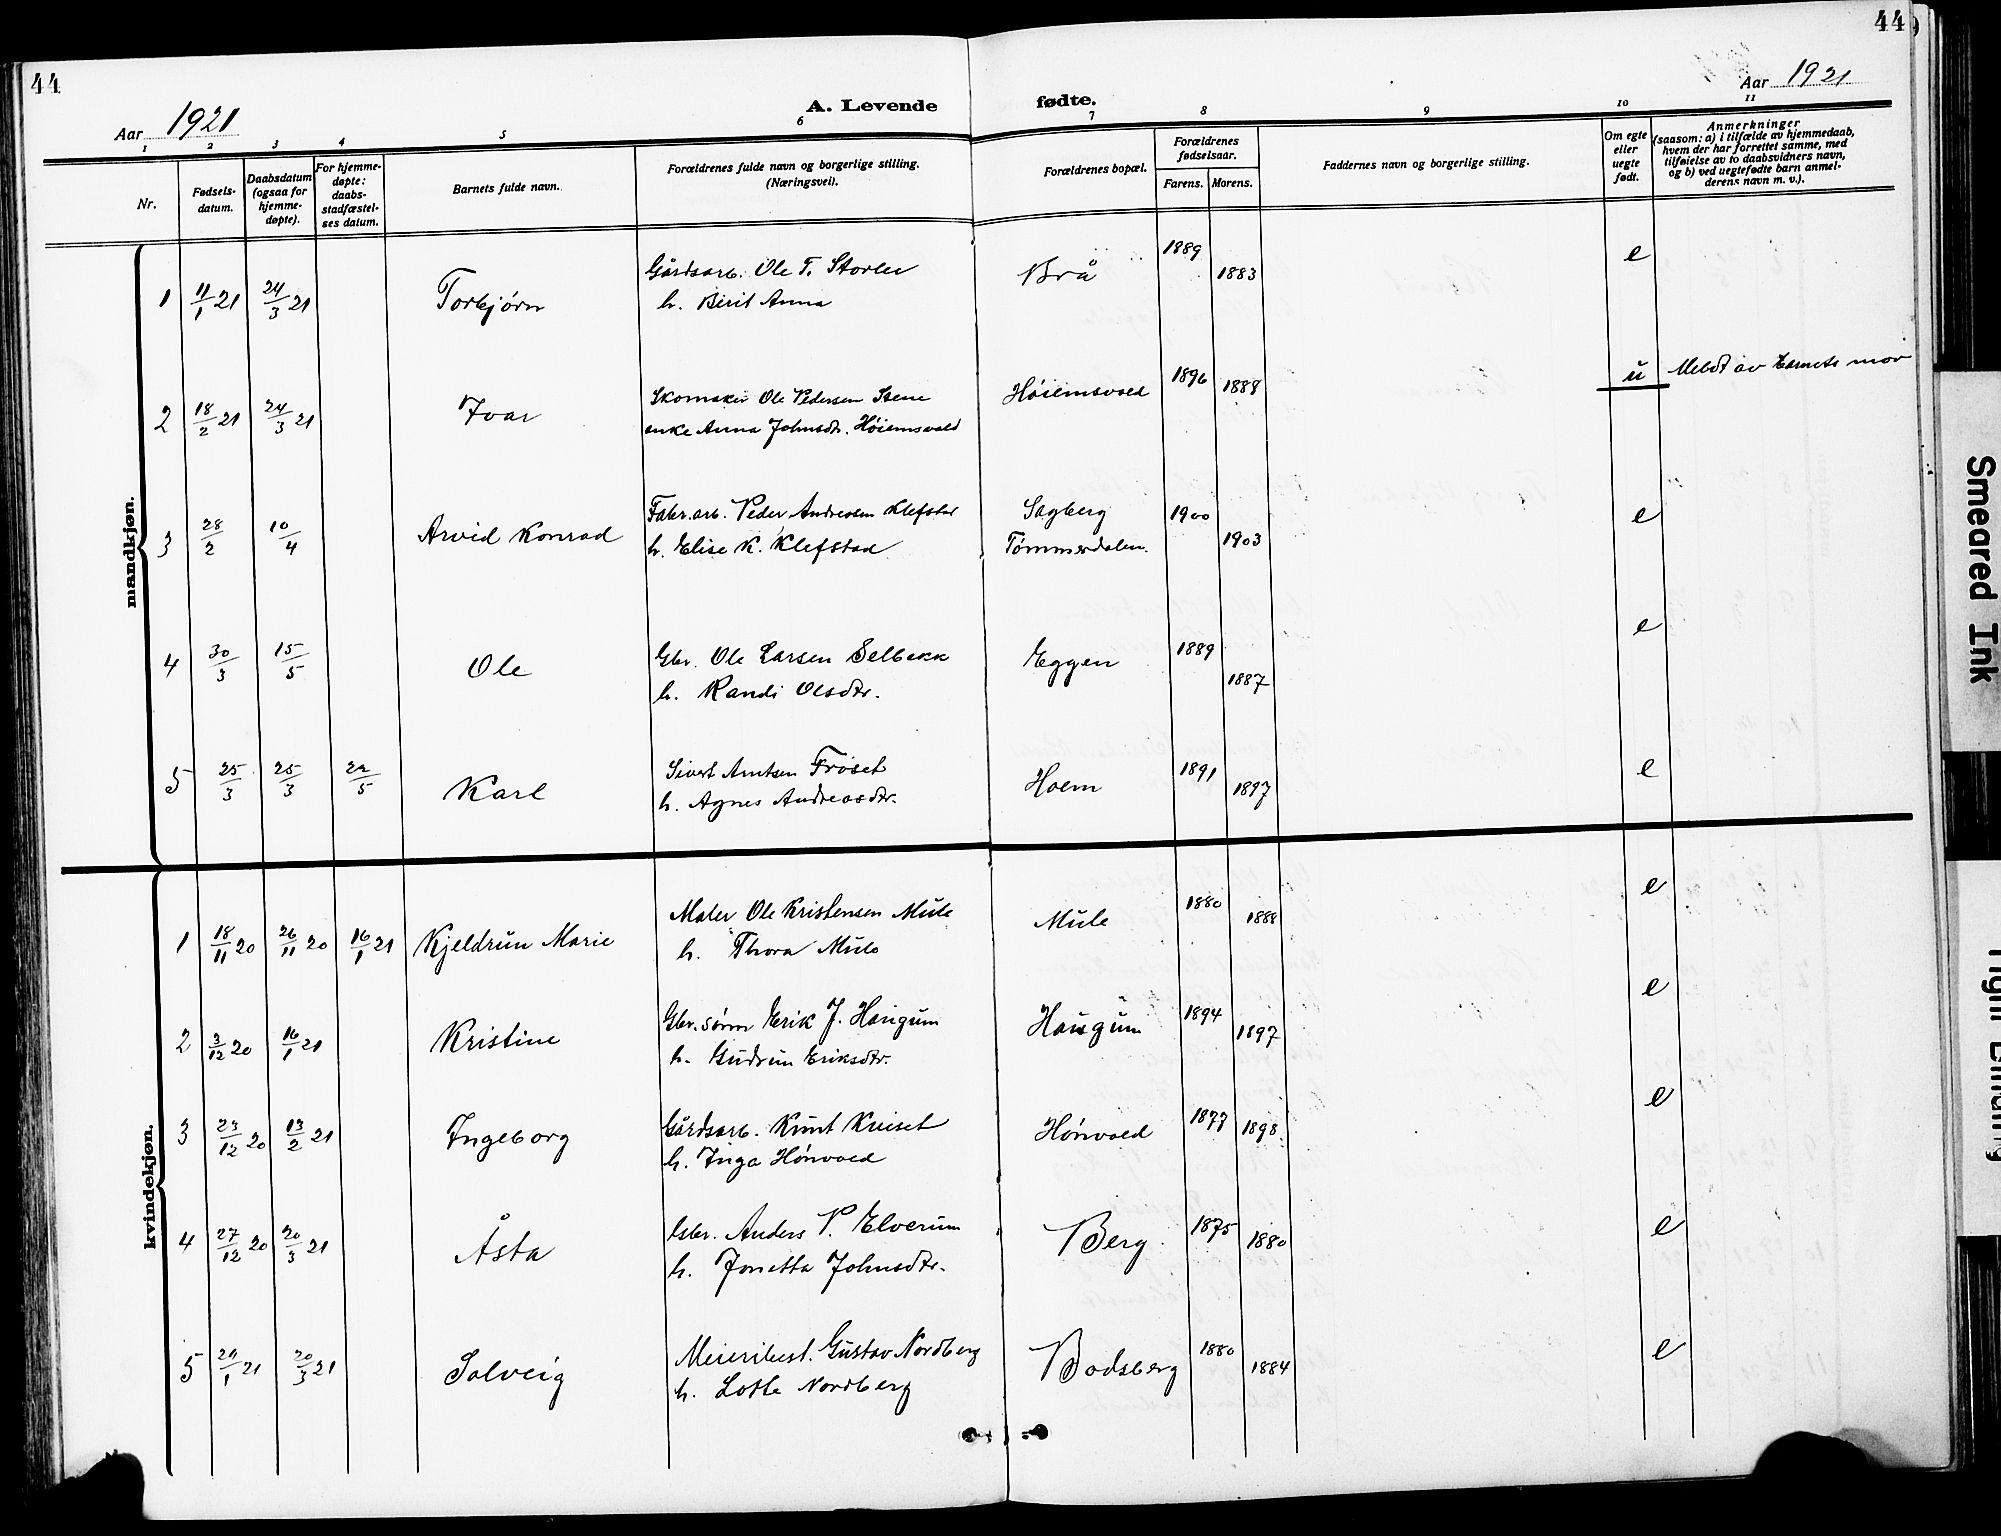 44
44
Aar 1921
A. Levende fødte.
Aar 1921
1 2 3 4 5 6 7 8 9 10 11
Nr.
Fødsels-
datum.
Daabsdatum
(ogsaa for
hjemme-
døpte).
For hjemme-
døpte:
daabs-
stadfæstel-
ses datum.
Barnets fulde navn.
Forældrenes fulde navn og borgerlige stilling.
(Næringsvei).
Forældrenes bopæl.
Forældrenes
fødselsaar.
Farens. Morens.
Faddernes navn og borgerlige stilling.
Om egte
eller
uegte
født.
Anmerkninger
(saasom: a) i tilfælde av hjemmedaab,
hvem der har forrettet samme, med
tilføielse av to daabsvidners navn,
og b) ved uegtefødte barn anmel-
derens navn m. v.).
mandkjøn.
1 11/1 21 24/3 21 Torbjørn Gårdsarb. Ole T. Storler Brå 1889 1883 e
h. Berit Anna
2 18/2 21 24/3 21 Ivar Skomaker Ole Pedersen Stene Høiemsvold 1896 1888 u Meldt av barnets mor
enke Anna Johnsdtr. Høiemsvold
3 28/2 10/4 Arvid Konrad Fabr.arb. Peder Andreasen Klefstad Sagberg 1900 1903 e
h. Elise K. Klefstad Tømmerdalen.
4 30/3 15/5 Ole Gbr. Ole Larsen Selbekk Eggen 1889 1887 e
h. Randi Olsdtr.
5 25/3 25/3 22/5 Karl Sivert Arntsen Frøset Hoem 1891 1897 e
h. Agnes Andreasdtr.
kvindekjøn.
1 18/11 20 26/11 20 16/1 21 Kjeldrun Marie Maler Ole Kristensen Mule Mule 1880 1888 e
h. Thora Mule
2 3/12 20 16/1 21 Kristine Gbr.sønn Erik J. Haugum Haugum 1894 1897 e
h. Gudrun Eriksdtr.
3 23/12 20 13/2 21 Ingeborg Gårdsarb. Knut Kuiset Hønvold 1877 1898 e
h. Inga Hønvold
4 27/12 20 20/3 21 Åsta Gbr. Anders P. Elverum Berg 1875 1880 e
h. Jonetta Johnsdtr.
5 24/1 21 20/3 21 Solveig Meieribest. Gustav Nordberg Bodsberg 1880 1884 e
h. Lotte Nordberg
Smeared Ink
Tight Binding